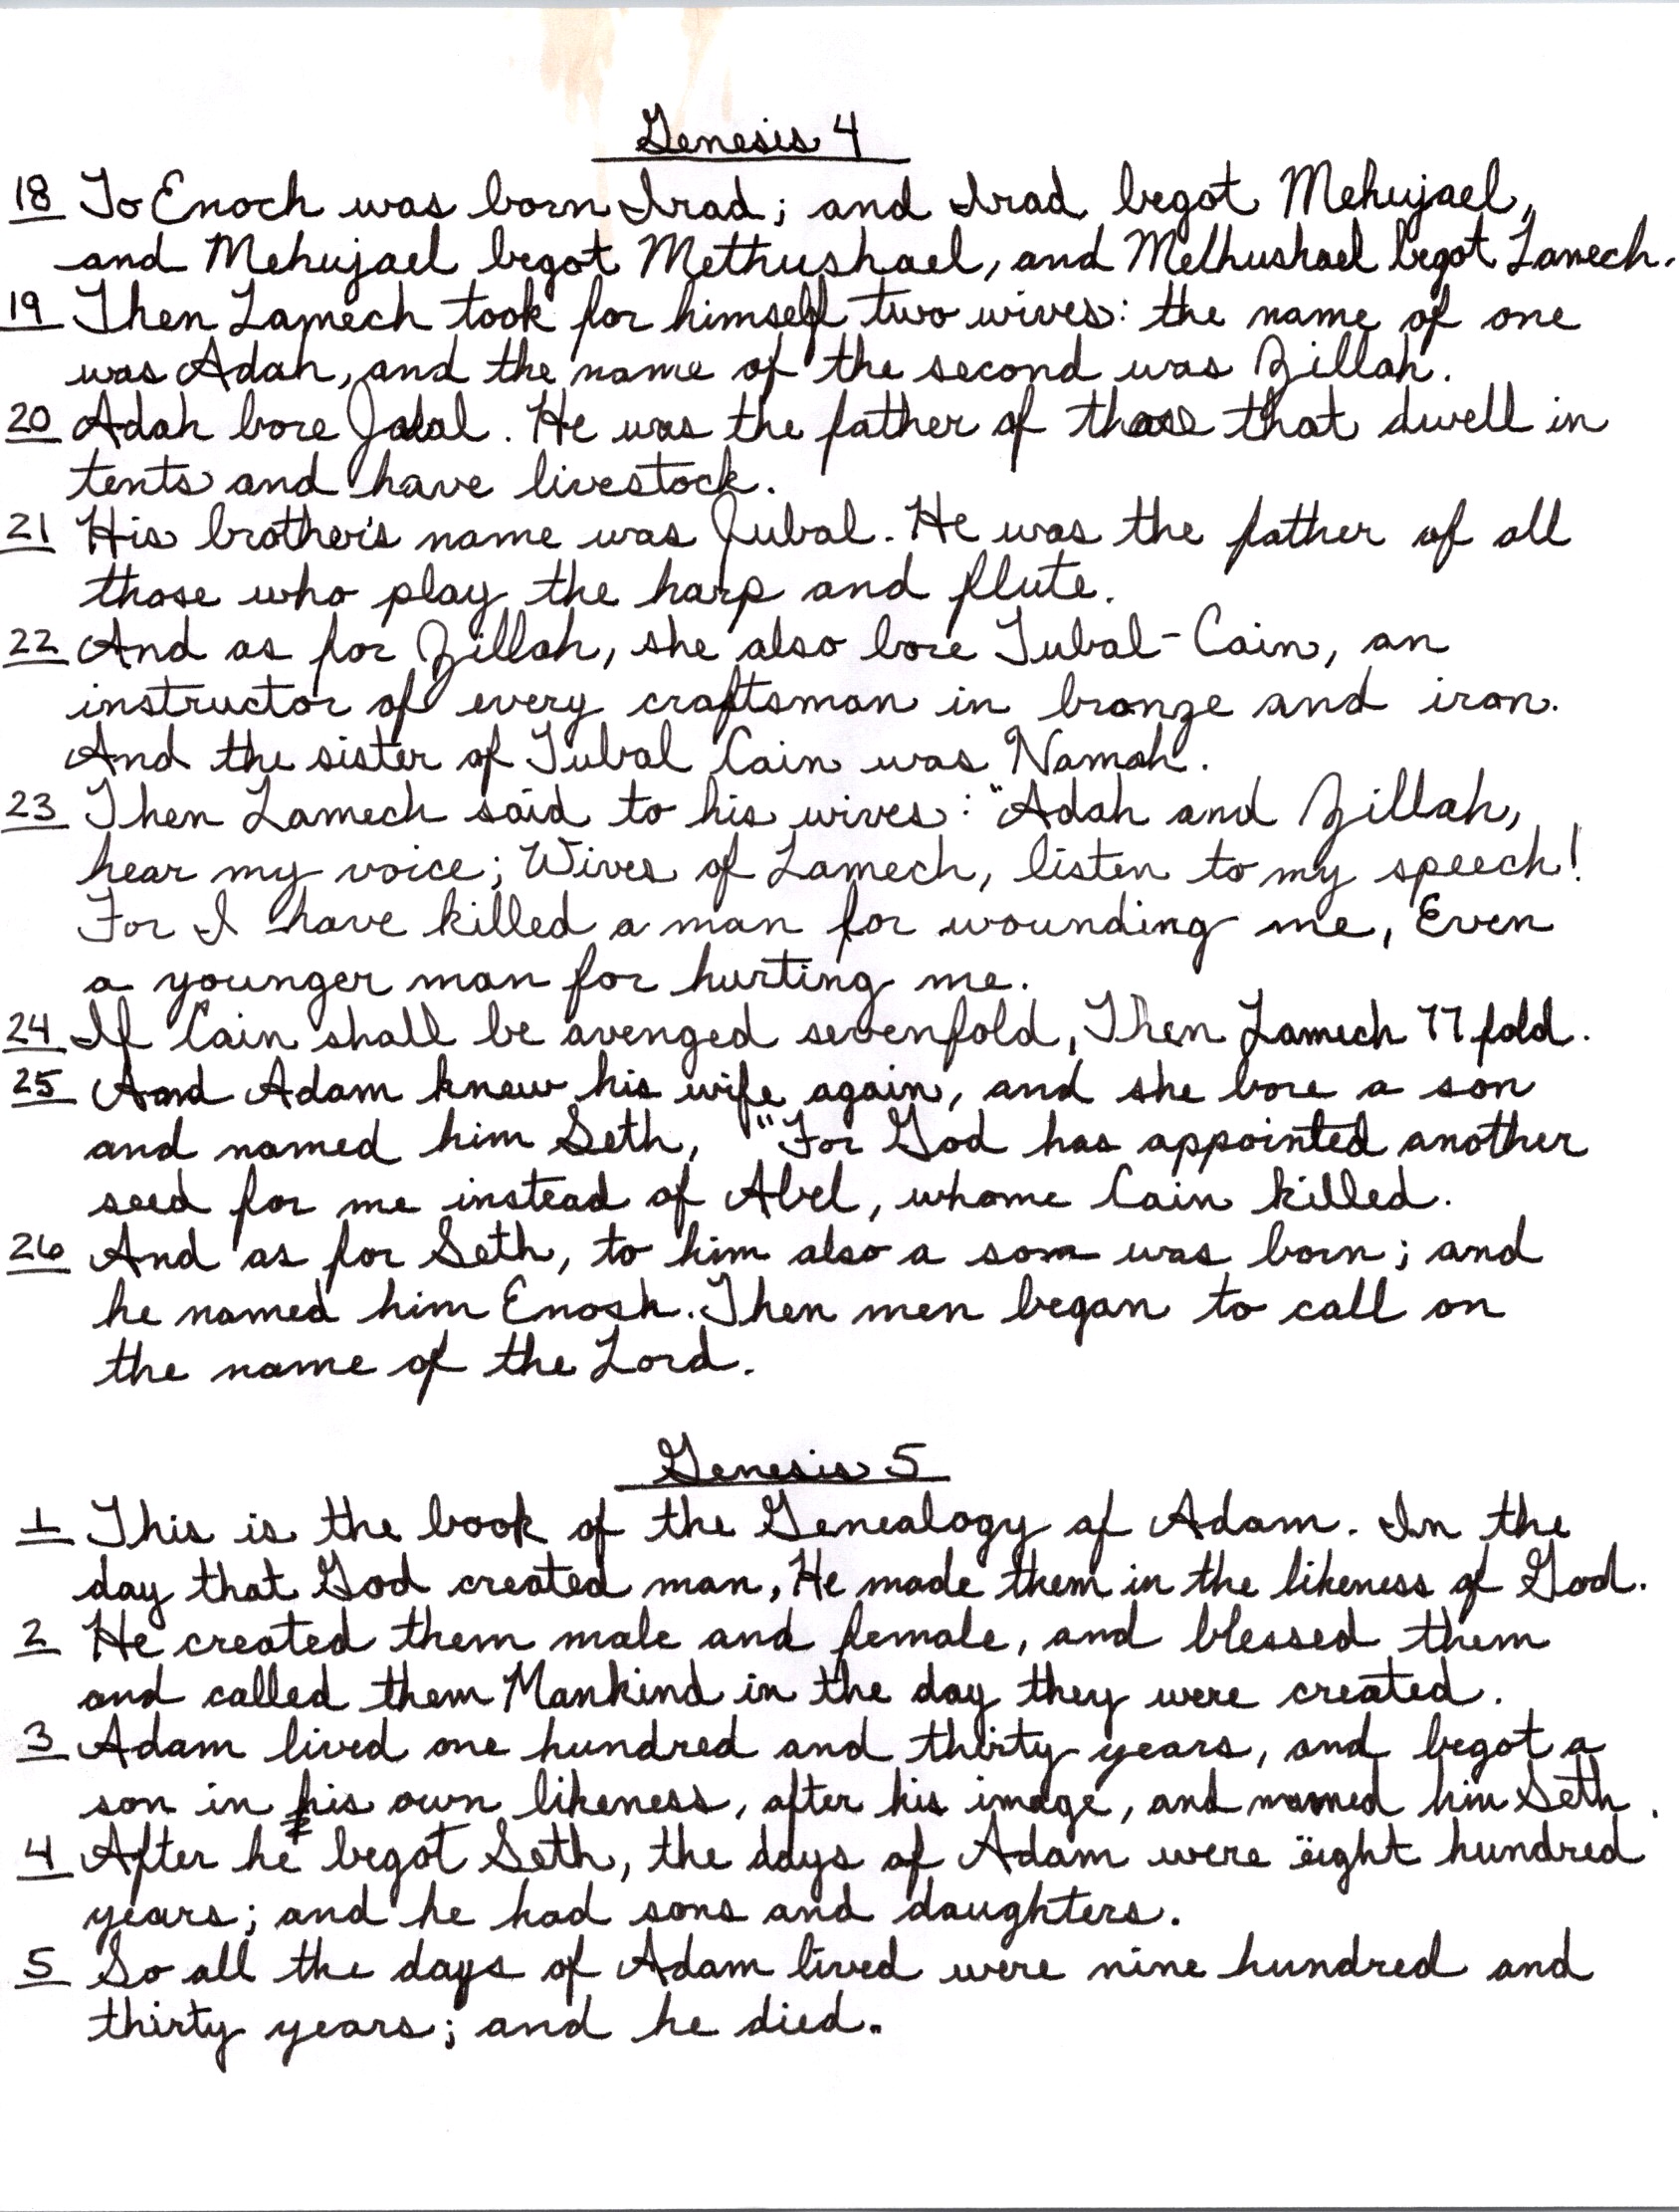 Genesis 4
18 To Enoch was born Irad; and Irad begot Mehujael,
and Mehujael begot Methushael, and Methushael begot Lamech.
19 Then Lamech took for himself two wives: the name of one
was Adah, and the name of the second was Zillah.
20 Adah bore Jabal. He was the father of those that dwell in
tents and have livestock.
21 His brother's name was Jubal. He was the father of all
those who play the harp and flute.
22 And as for Zillah, she also bore Tubal-Cain, an
instructor of every craftsman in bronze and iron.
And the sister of Tubal Cain was Namah.
23 Then Lamech said to his wives: "Adah and Zillah,
hear my voice; Wives of Lamech, listen to my speech!
For I have killed a man for wounding me, Even
a younger man for hurting me.
24 If Cain shall be avenged sevenfold, Then Lamech 77 fold.
25 And Adam knew his wife again, and she bore a son
and named him Seth, "For God has appointed another
seed for me instead of Abel, whome Cain killed.
26 And as for Seth, to him also a son was born; and
he named him Enosh. Then men began to call on
the name of the Lord.
Genesis 5
1 This is the book of the Genealogy of Adam. In the
day that God created man, He made them in the likeness of God.
2 He created them male and female, and blessed them
and called them Mankind in the day they were created.
3 Adam lived one hundred and thirty years, and begot a
son in his own likeness, after his image, and named him Seth.
4 After he begot Seth, the days of Adam were eight hundred
years; and he had sons and daughters.
5 So all the days of Adam lived were nine hundred and
thirty years; and he died.